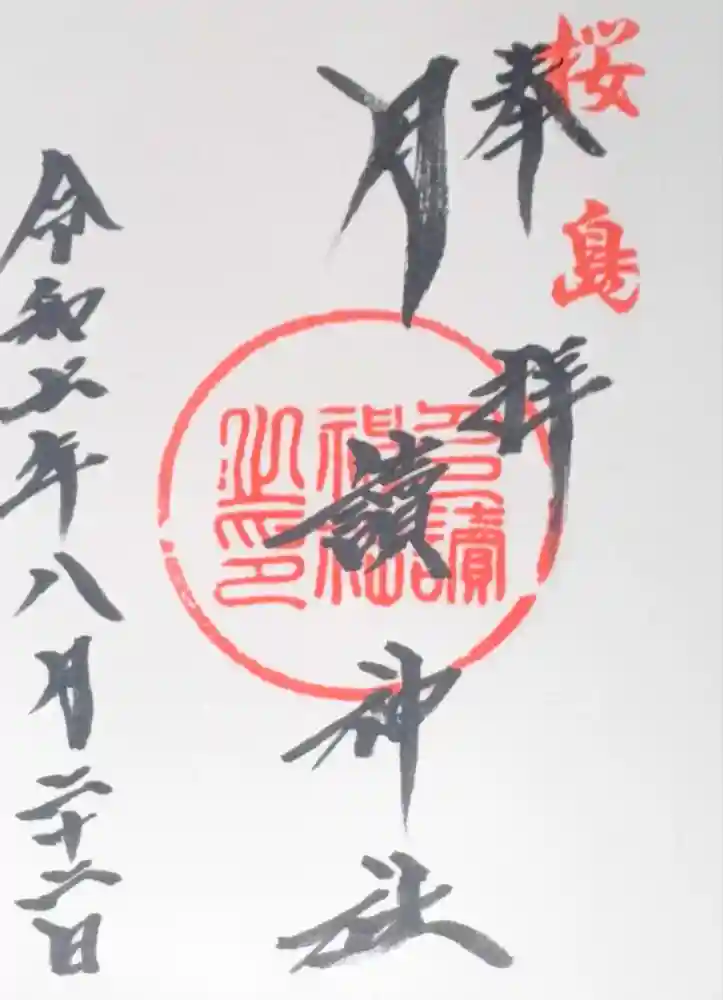 桜島
奉拝
月讀神社
月讀
神社
之印
令和五年八月二十二日